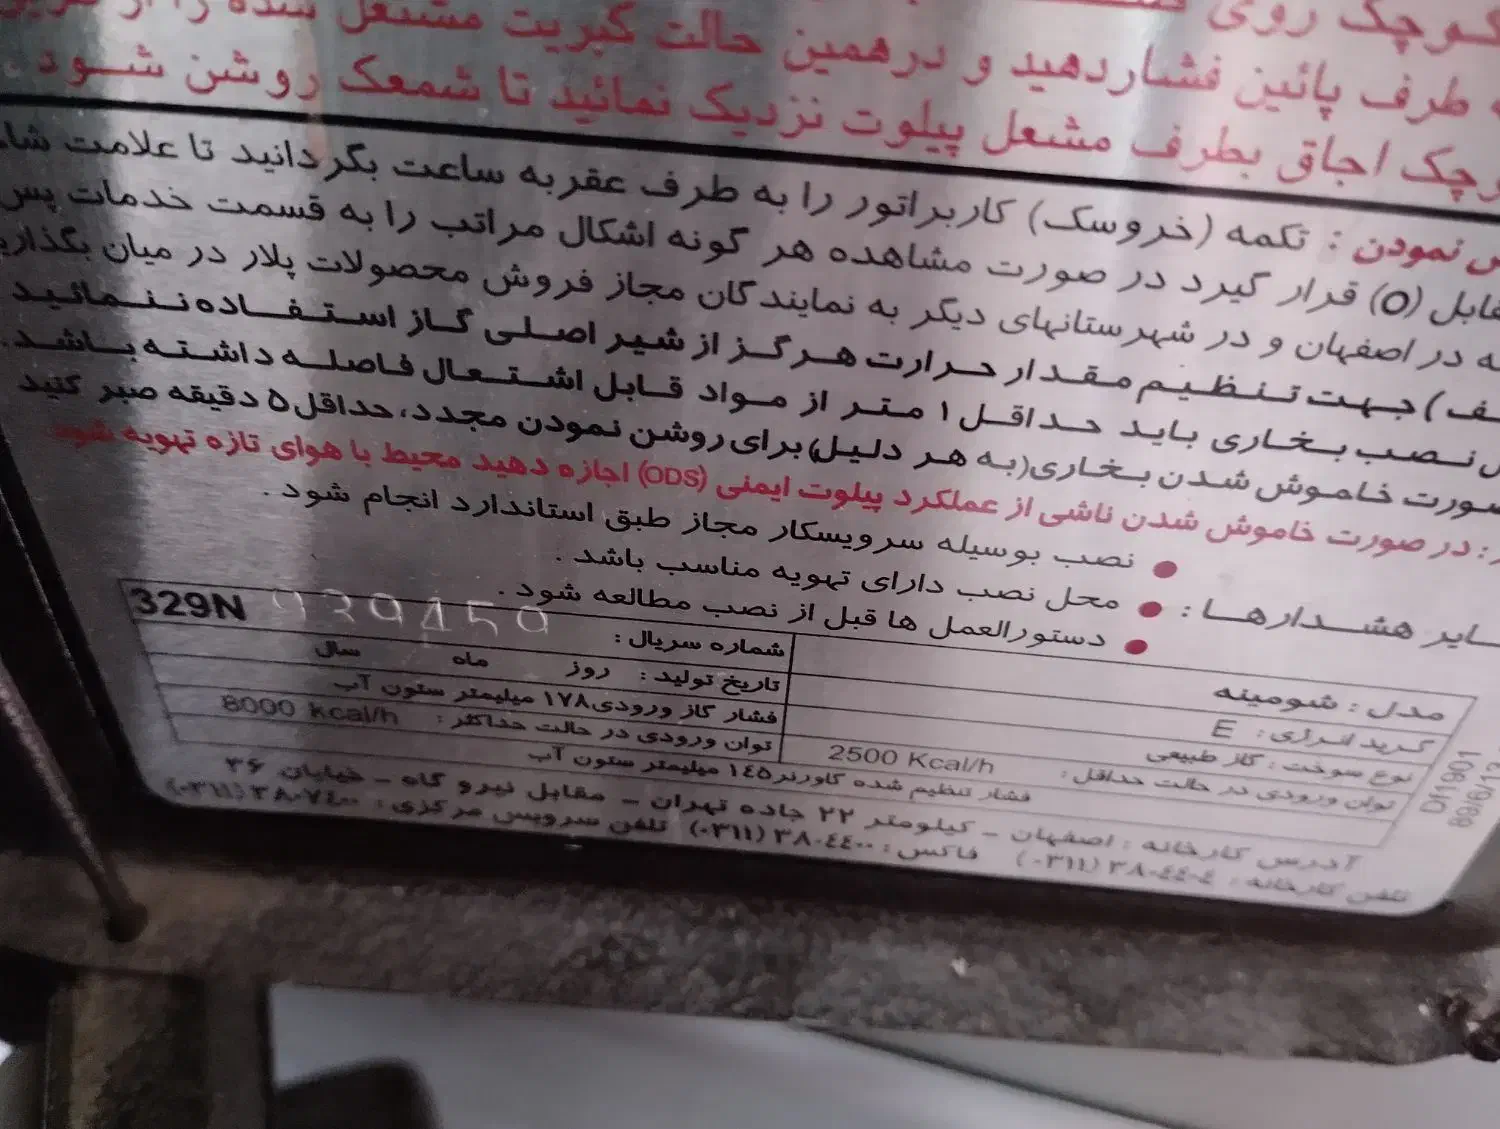 کوچک روی
طرف پائین فشاردهید و درهمین حالت کبریت مشتعل شده را از
اجاق بطرف مشعل پیلوت نزدیک نمائید تا شمعک روشن شود .
نمودن : تکمه (خروسک) کاربراتور را به طرف عقربه ساعت بگردانید تا علامت
(O) قرار گیرد در صورت مشاهده هر گونه اشکال مراتب را به قسمت خدمات پس
در اصفهان و در شهرستانهای دیگر به نمایندگان مجاز فروش محصولات پلار در میان
) جهت تنظیم مقدار حرارت هرگز از شیر اصلی گاز استفاده ننمائید
نصب بخاری باید حداقل ۱ متر از مواد قابل اشتعال فاصله داشته باشد.
خاموش شدن بخاری(به هر دلیل)برای روشن نمودن مجدد، حداقل ۵ دقیقه صبر کنید
: در صورت خاموش شدن ناشی از عملکرد پیلوت ایمنی (ODS) اجازه دهید محیط با هوای تازه تهویه شود
• نصب بوسیله سرویسکار مجاز طبق استاندارد انجام شود .
هشدارها : • محل نصب دارای تهویه مناسب باشد .
• دستورالعمل ها قبل از نصب مطالعه شود .
مدل : شومینه
شماره سریال : 329N 939459
گرید انرژی : E
تاریخ تولید : روز ماه سال
نوع سوخت : گاز طبیعی
فشار گاز ورودی۱۷۸ میلیمتر ستون آب
توان ورودی در حالت حداقل : 2500 Kcal/h
توان ورودی در حالت حداکثر : 8000 kcal/h
فشار تنظیم شده گاورنر۱٤۵ میلیمتر ستون آب
آدرس کارخانه : اصفهان - کیلومتر ۲۲ جاده تهران - مقابل نیرو گاه - خیابان ۳۶
تلفن کارخانه : ٣٨٠٤٤٠٤ (٠٣١١) فاکس : ٣٨٠٤٤٠٠ (٠٣١١) تلفن سرویس مرکزی : ٣٨٠٧٤٠٠ (٠٣١١)
DI1901